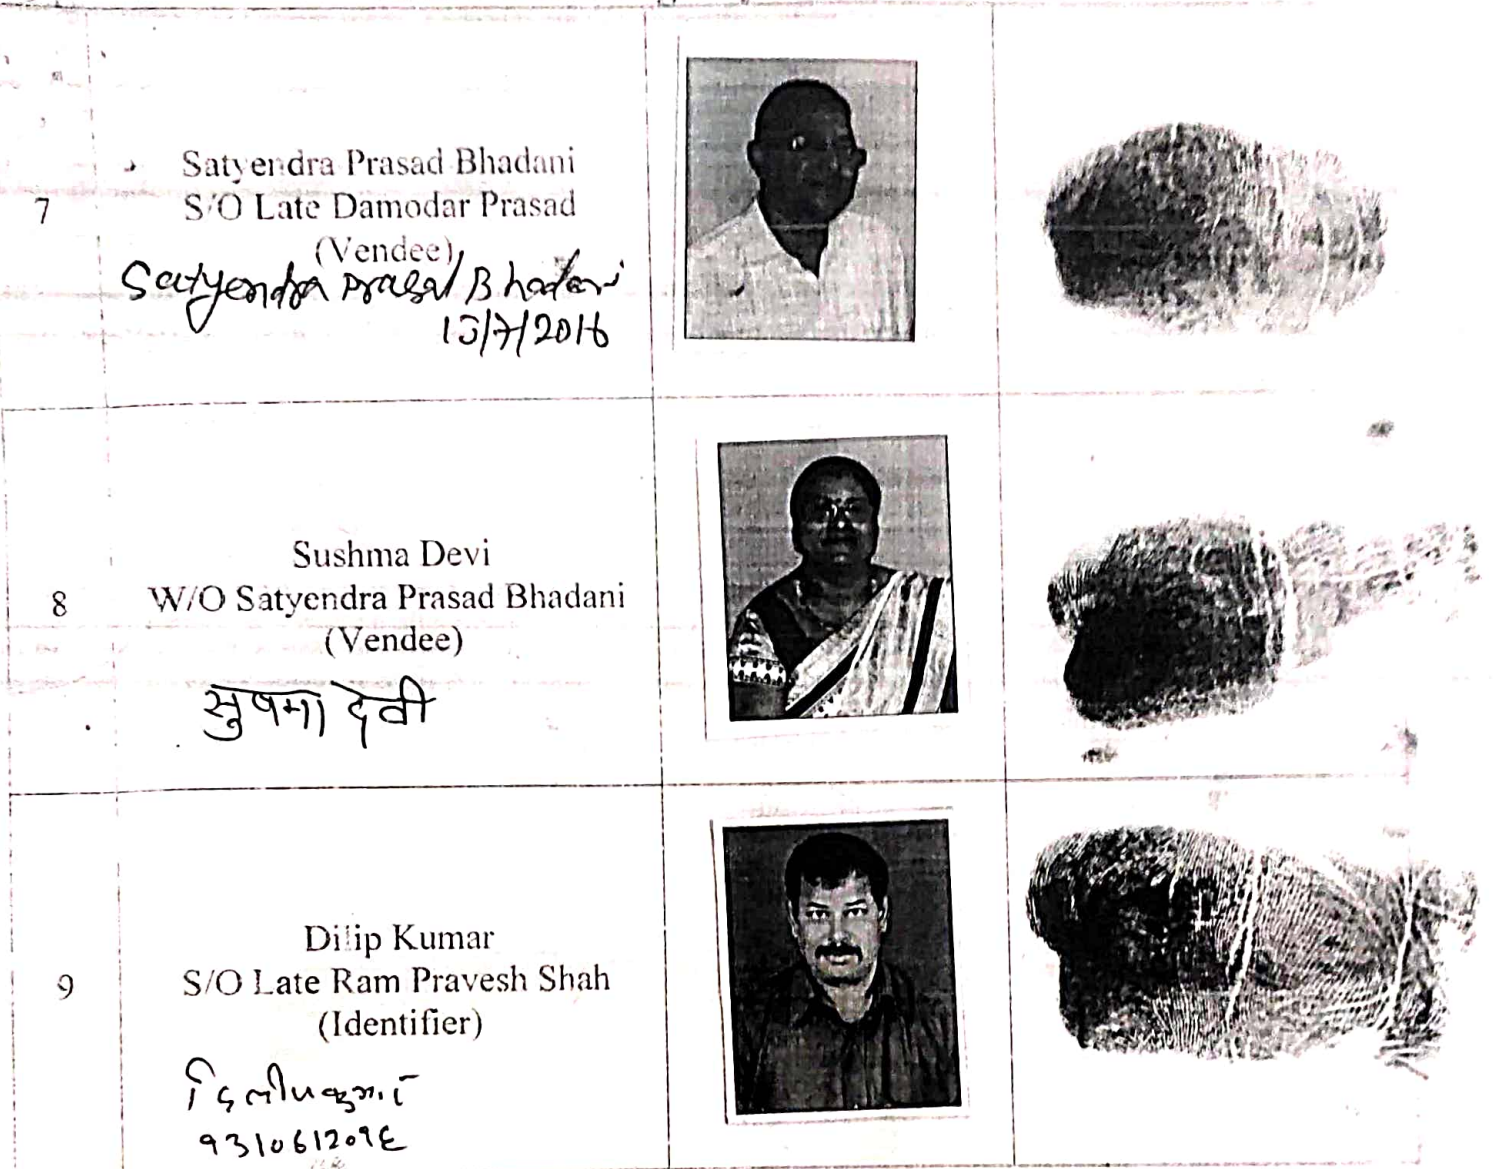 7
Satyendra Prasad Bhadani
S/O Late Damodar Prasad
(Vendee)
Satyendra Prasad Bhadani
15/7/2016
8
Sushma Devi
W/O Satyendra Prasad Bhadani
(Vendee)
सुषमा देवी
9
Dilip Kumar
S/O Late Ram Pravesh Shah
(Identifier)
दिलीप कुमार